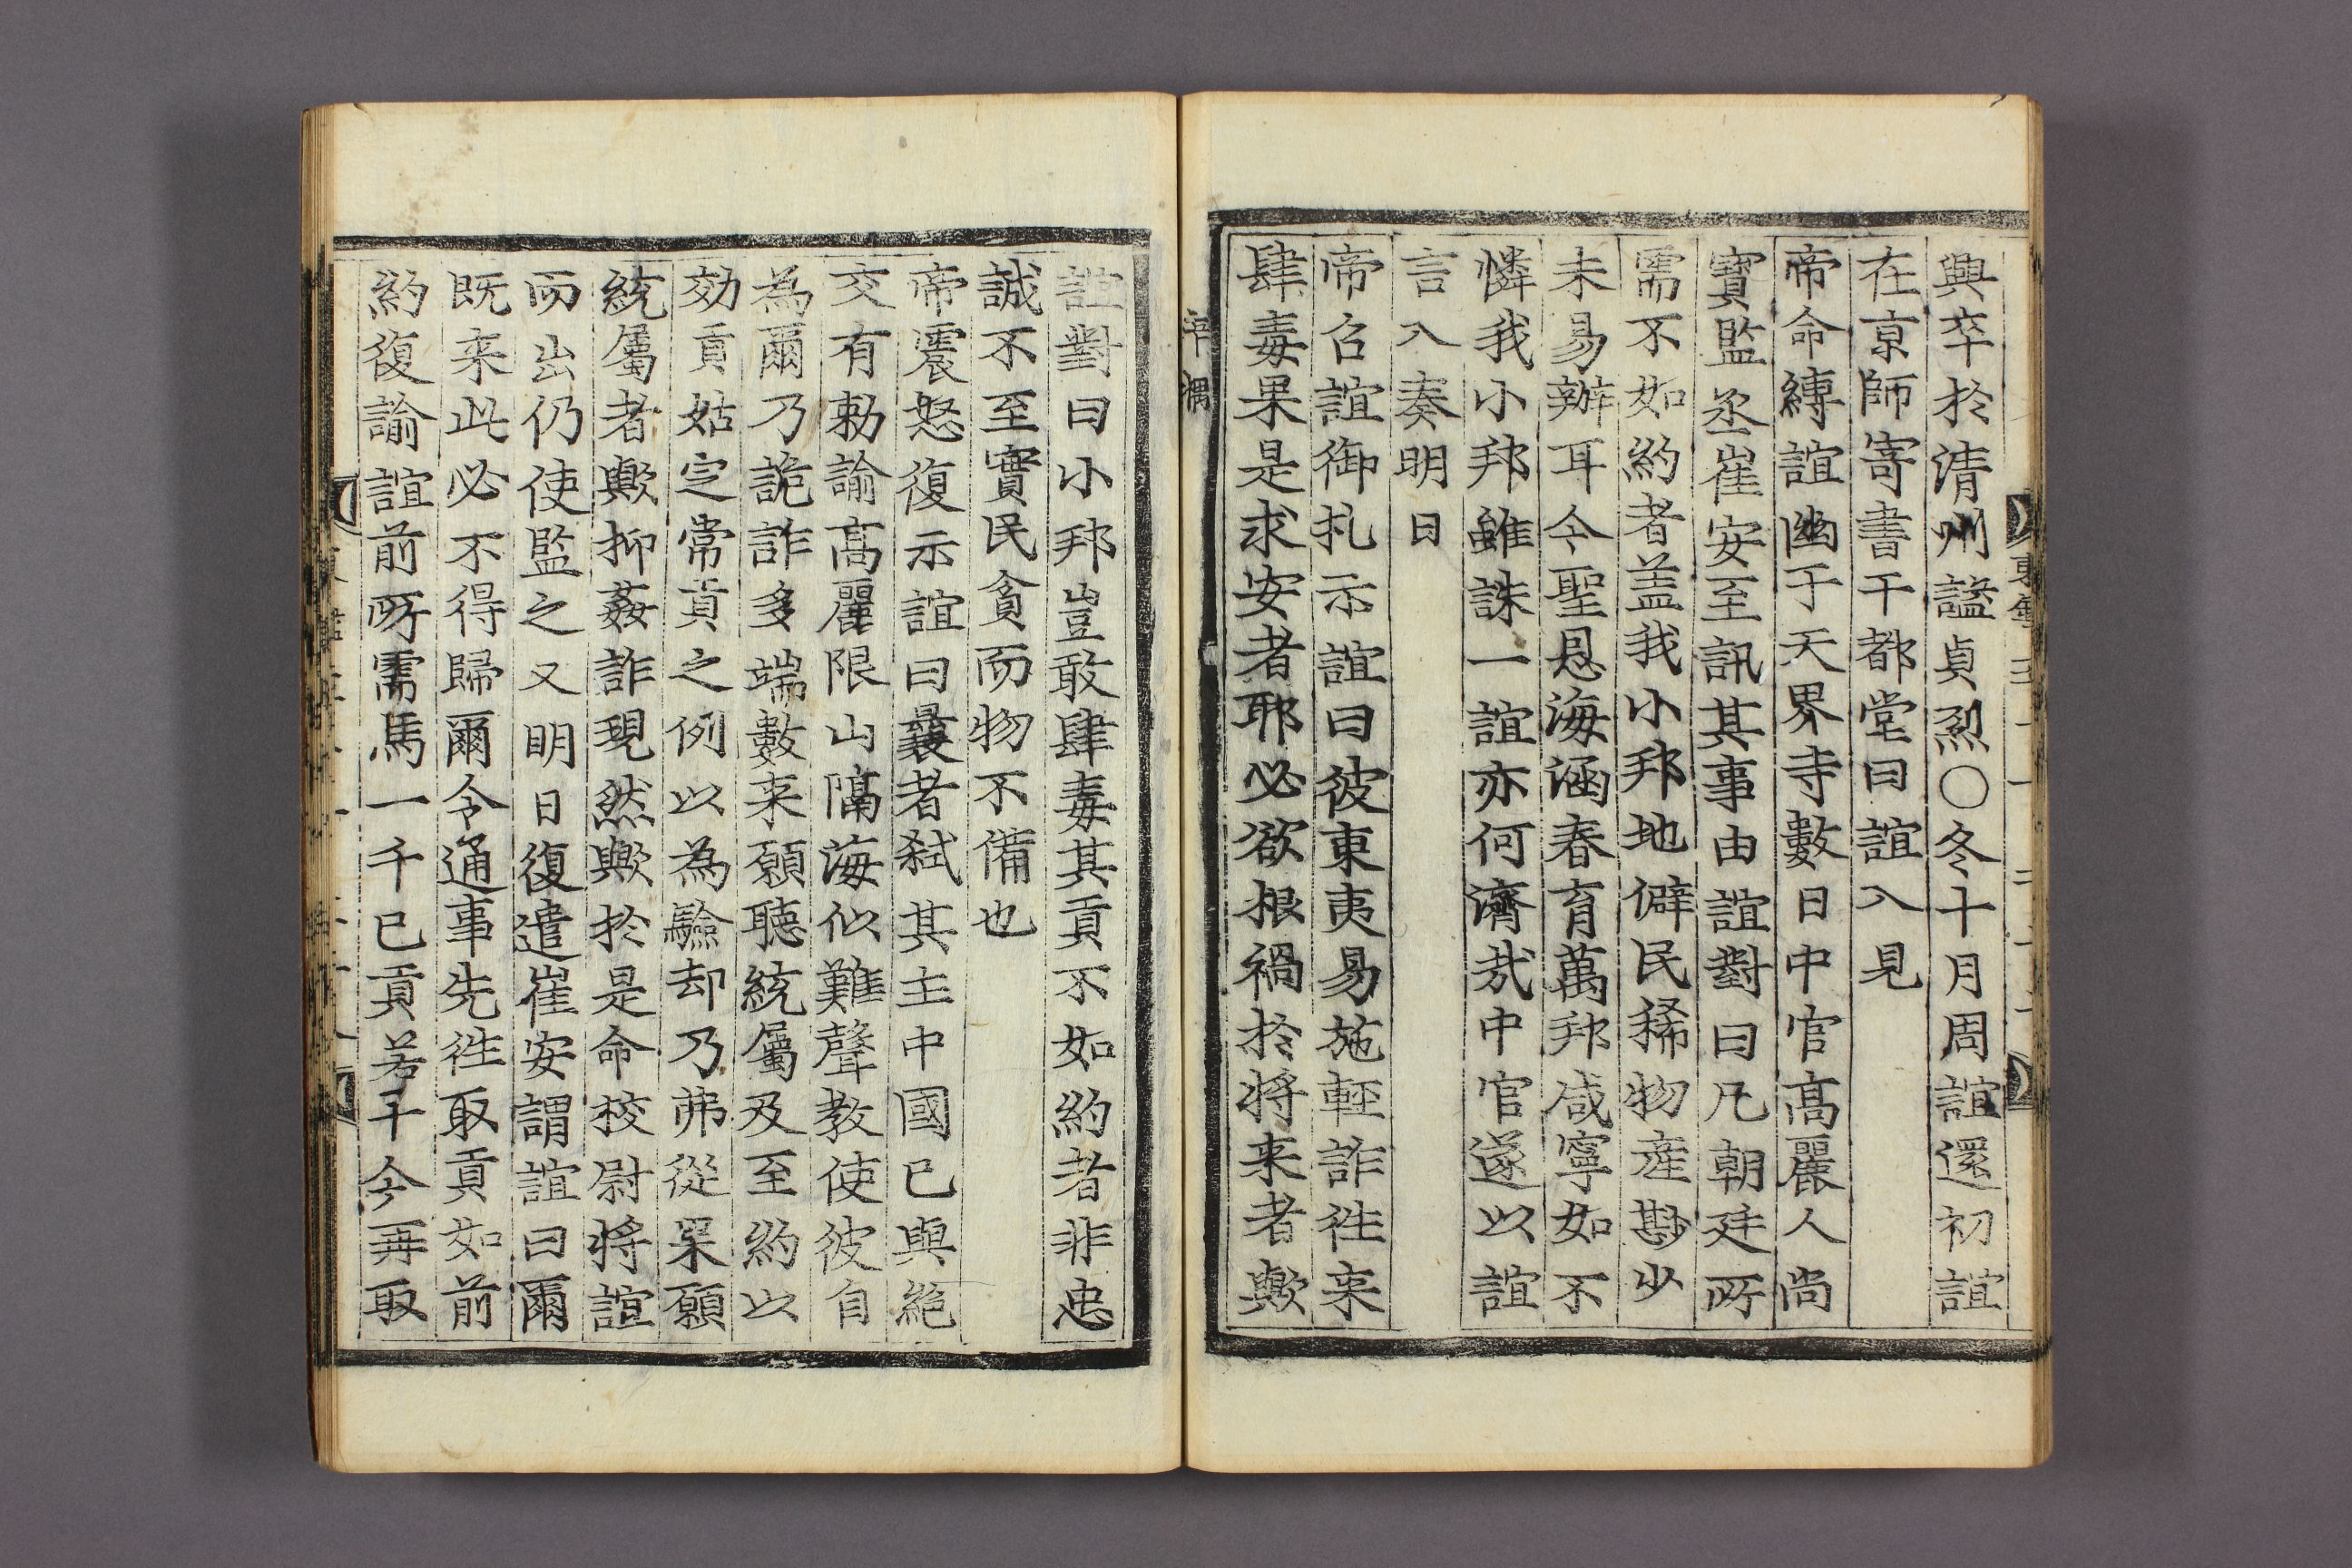 興卒於淸州謚貞烈〇冬十月周誼還初誼
在京師寄書于都堂曰誼入見
帝命縳誼幽于天界寺數日中官髙麗人尚
寳監丞崔安至訊其事由誼對曰凡朝廷所
需不如約者盖我小邦地僻民稀物産尠少
未易辦耳今聖恩海涵春育萬邦咸寧如不
憐我小邦雖誅一誼亦何濟㦲中官遂以誼
言入奏明日
帝召誼御札示誼曰彼東夷易施輕詐徃来
肆毒果是求安者耶必欲根禍於將来者歟
辛禑
誼對曰小邦豈敢肆毒其貢不如約者非忠
誠不至實民貧而物不備也
帝震怒復示誼曰曩者弑其主中國已與絶
交有勑諭髙麗限山隔海似難聲教使彼自
為爾乃詭詐多端數来願聽統屬及至約以
効貢姑㝎常貢之例以為驗却乃弗從果願
統屬者歟抑姦詐現然歟於是命校尉將誼
而出仍使監之又明日復遣崔安謂誼曰爾
既来此必不得歸爾令通事先徃取貢如前
約復諭誼前所需馬一千已貢若干今再取